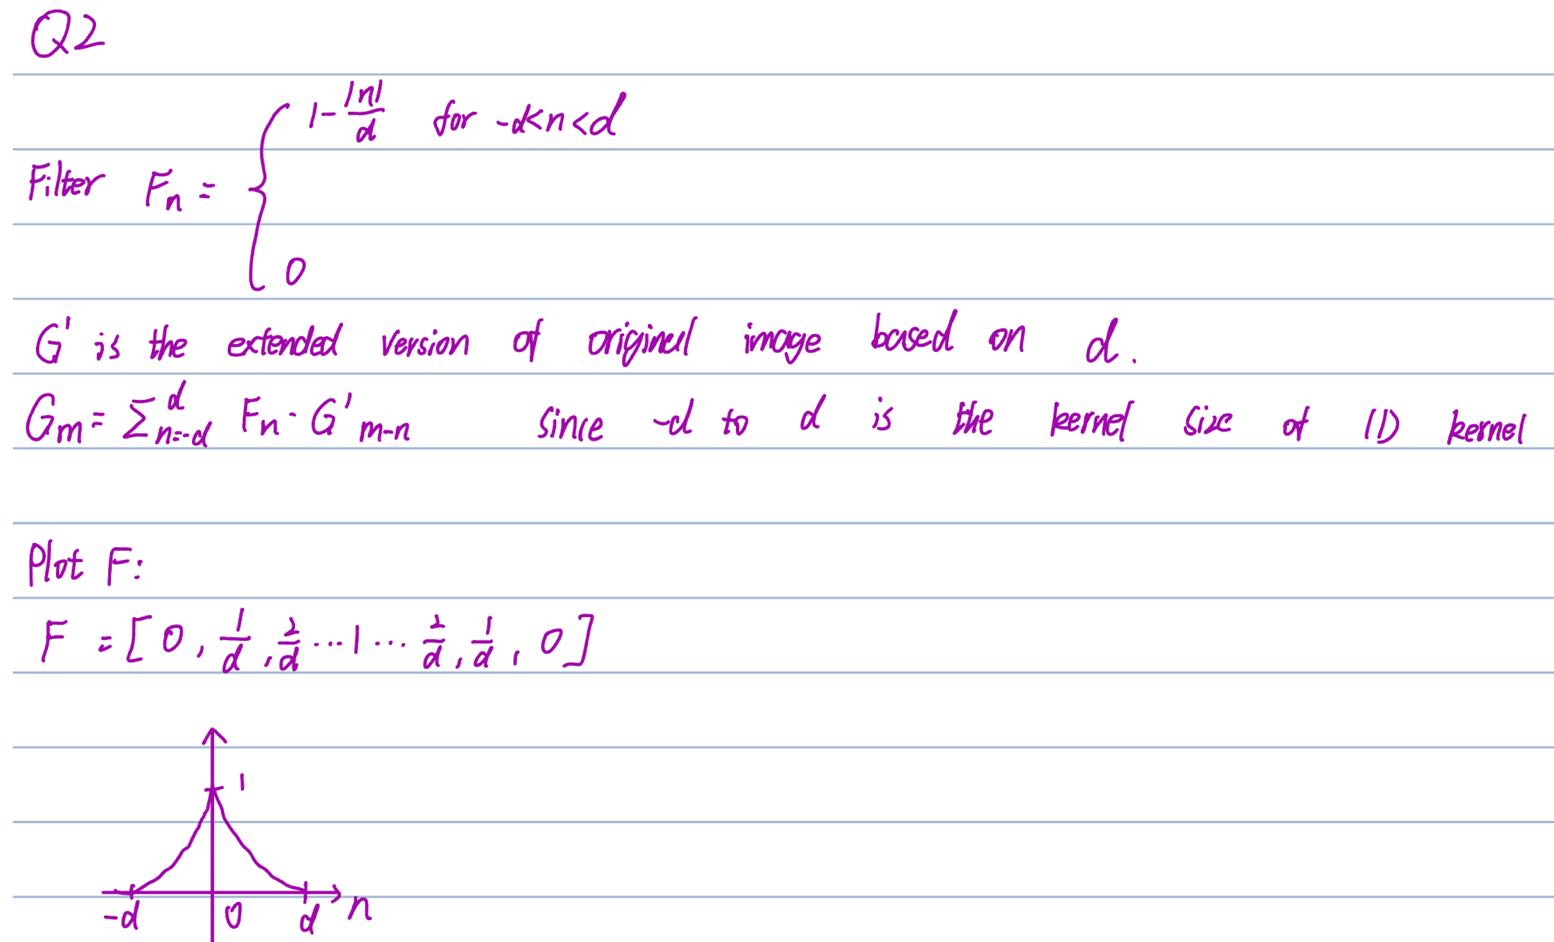 Q2
Filter F_n = { 1 - |n|/d for -d<n<d
0
G' is the extended version of original image based on d.
G_m = Σ_{n=-d}^{d} F_n · G'_{m-n} since -d to d is the kernel size of 1D kernel
Plot F:
F = [0, 1/d, 2/d ... 1 ... 2/d, 1/d, 0]
1
-d 0 d n